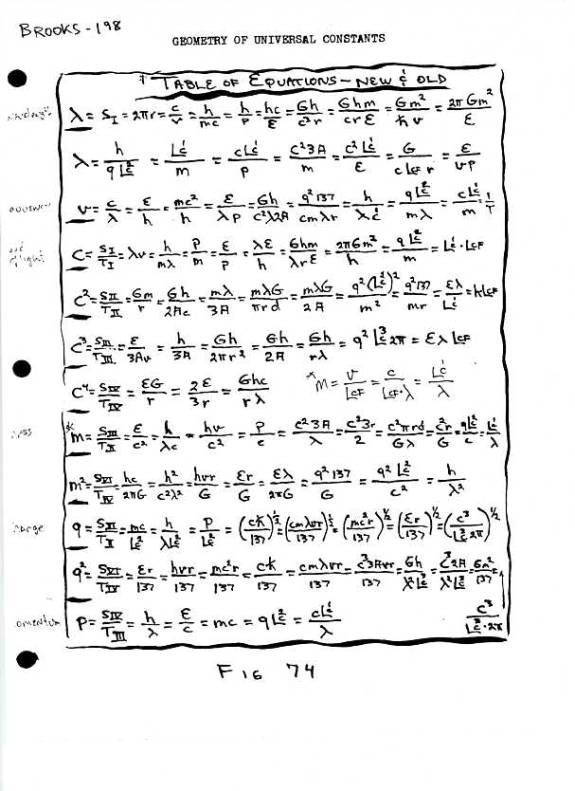 BROOKS-198
GEOMETRY OF UNIVERSAL CONSTANTS
TABLE OF EQUATIONS ~ NEW & OLD
λ = S_I = 2πr = c/v = h/mc = h/p = hc/ε = Gh/c²r = Ghm/crε = Gm²/ħv = 2πGm²/ε
λ = h/qL²c = L¹c/m = cL¹c/p = c²3A/m = c²L¹c/ε = G/cLcFr = ε/vp
v = c/λ = ε/h = mc²/h = ε/λp = Gh/c²λ2A = q²137/cmλr = h/λ¹c = qL²c/mλ = cL¹c/m 1/T
C = S_I/T_I = λv = h/mλ = p/m = ε/p = λε/h = Ghm/λrε = 2πGm²/h = qL²c/m = L¹c·LcF
C² = S_II/T_II = Gm/r = Gh/2Ac = mλ/3A = mλG/πrd = mλG/2A = q²(L¹c)²/m² = q²137/mr = ελ/L¹c = hLcF
C³ = S_III/T_III = ε/3Av = h/3A = Gh/2πr² = Gh/2A = Gh/rλ = q²L³c2π = ελLcF
C⁴ = S_IV/T_IV = εG/r = 2ε/3r = Ghc/rλ *m = v/LcF = c/LcF·λ = L¹c/λ
mass
*m = S_III/T_II = ε/c² = h/λc = hv/c² = p/c = c²3A/λ = c²3r/2 = c²πrd/Gλ = c²r/G = qL²c/c = L¹c/λ
m² = S_VI/T_IV = hc/2πG = h²/c²λ² = hvr/G = εr/G = ελ/2πG = q²137/G = q²L²c/c² = h/λ²
charge
q = S_III/T_II = mc/L²c = h/λL²c = p/L²c = (cħ/137)^½ = (cmλvr/137)^½ = (mc²r/137)^½ = (εr/137)^½ = (c³/L³c2π)^½
q² = S_VI/T_IV = εr/137 = hvr/137 = mc²r/137 = cħ/137 = cmλvr/137 = c³Avr/137 = Gh/λ²L³c = c³2A/λ²L³c = Gm²/137
momentum
P = S_IV/T_III = h/λ = ε/c = mc = qL²c = cL¹c/λ c³/L³c·2π
FIG 74